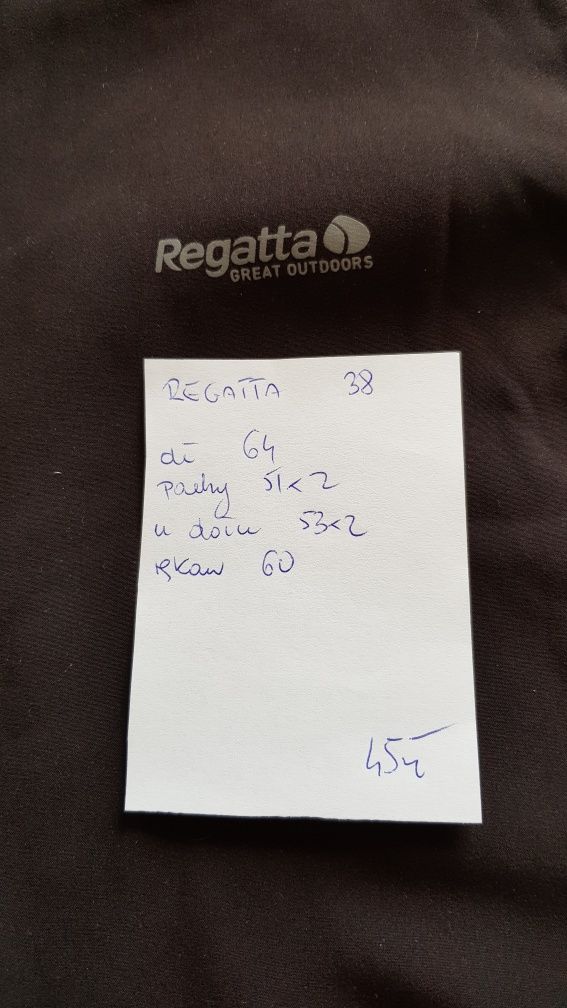 Regatta
GREAT OUTDOORS
REGATTA 38
dł 64
pachy 51x2
u dołu 53x2
rękaw 60
45zł